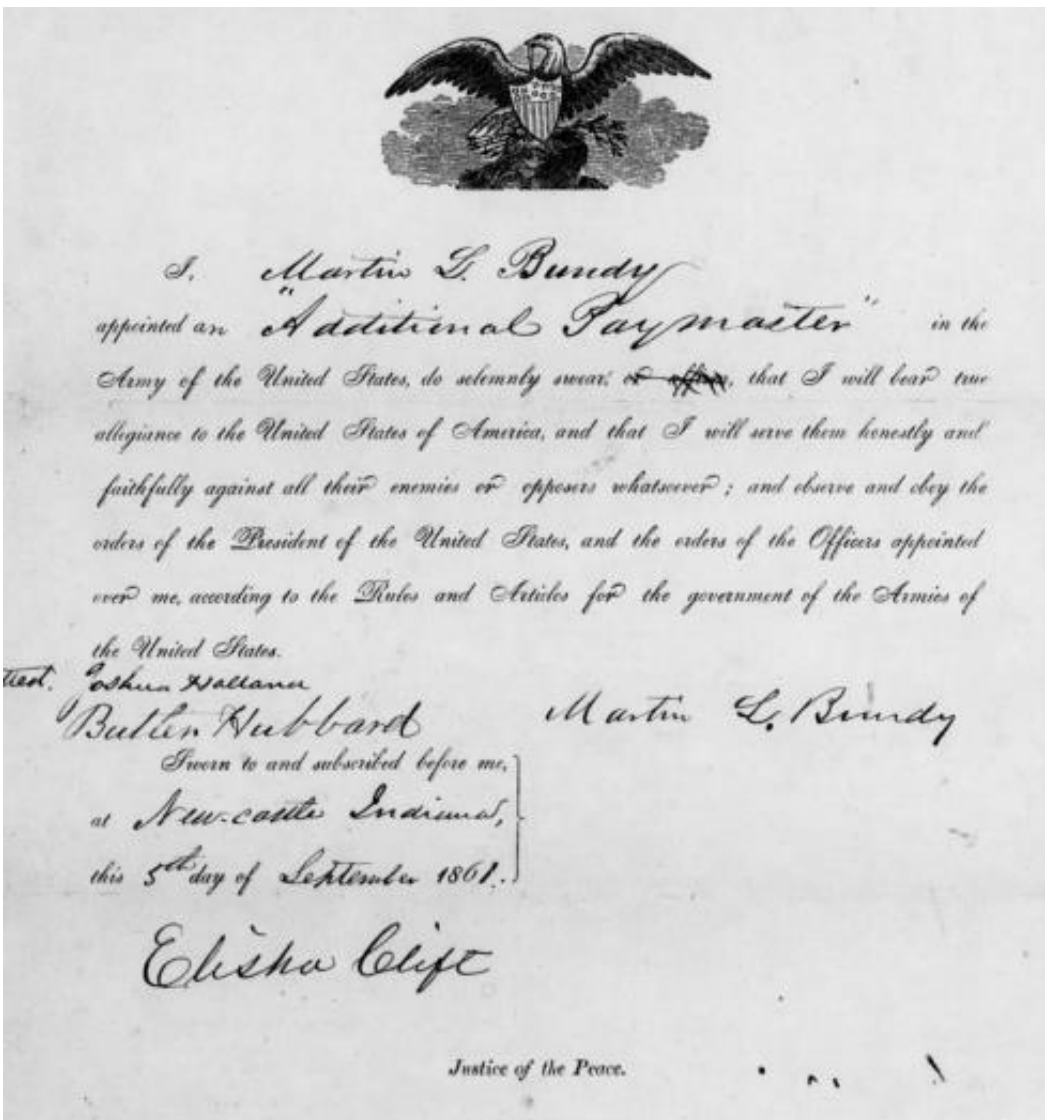 I, Martin L. Bundy
appointed an "Additional Paymaster" in the
Army of the United States, do solemnly swear, or affirm, that I will bear true
allegiance to the United States of America, and that I will serve them honestly and
faithfully against all their enemies or opposers whatsoever; and observe and obey the
orders of the President of the United States, and the orders of the Officers appointed
over me, according to the Rules and Articles for the government of the Armies of
the United States.
Joshua Holland
Butler Hubbard
Martin L. Bundy
Sworn to and subscribed before me,
at New-castle Indiana,
this 5th day of September 1861.
Elisha Clift
Justice of the Peace.